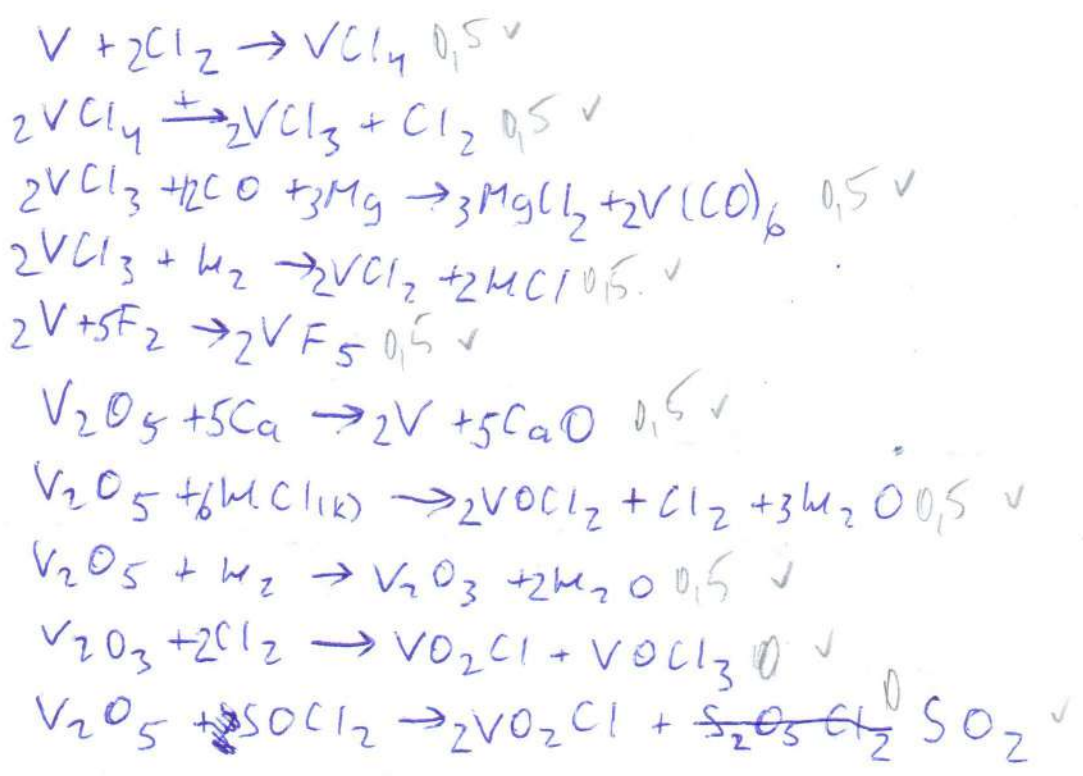 V + 2Cl₂ → VCl₄ 0,5 ✓
2VCl₄ →ᵗ 2VCl₃ + Cl₂ 0,5 ✓
2VCl₃ + 12CO + 3Mg → 3MgCl₂ + 2V(CO)₆ 0,5 ✓
2VCl₃ + H₂ → 2VCl₂ + 2HCl 0,5 ✓
2V + 5F₂ → 2VF₅ 0,5 ✓
V₂O₅ + 5Ca → 2V + 5CaO 0,5 ✓
V₂O₅ + 6HCl(к) → 2VOCl₂ + Cl₂ + 3H₂O 0,5 ✓
V₂O₅ + H₂ → V₂O₃ + 2H₂O 0,5 ✓
V₂O₃ + 2Cl₂ → VO₂Cl + VOCl₃ 0 ✓
V₂O₅ + SOCl₂ → 2VO₂Cl + S₂O₃Cl₂ SO₂ 0 ✓